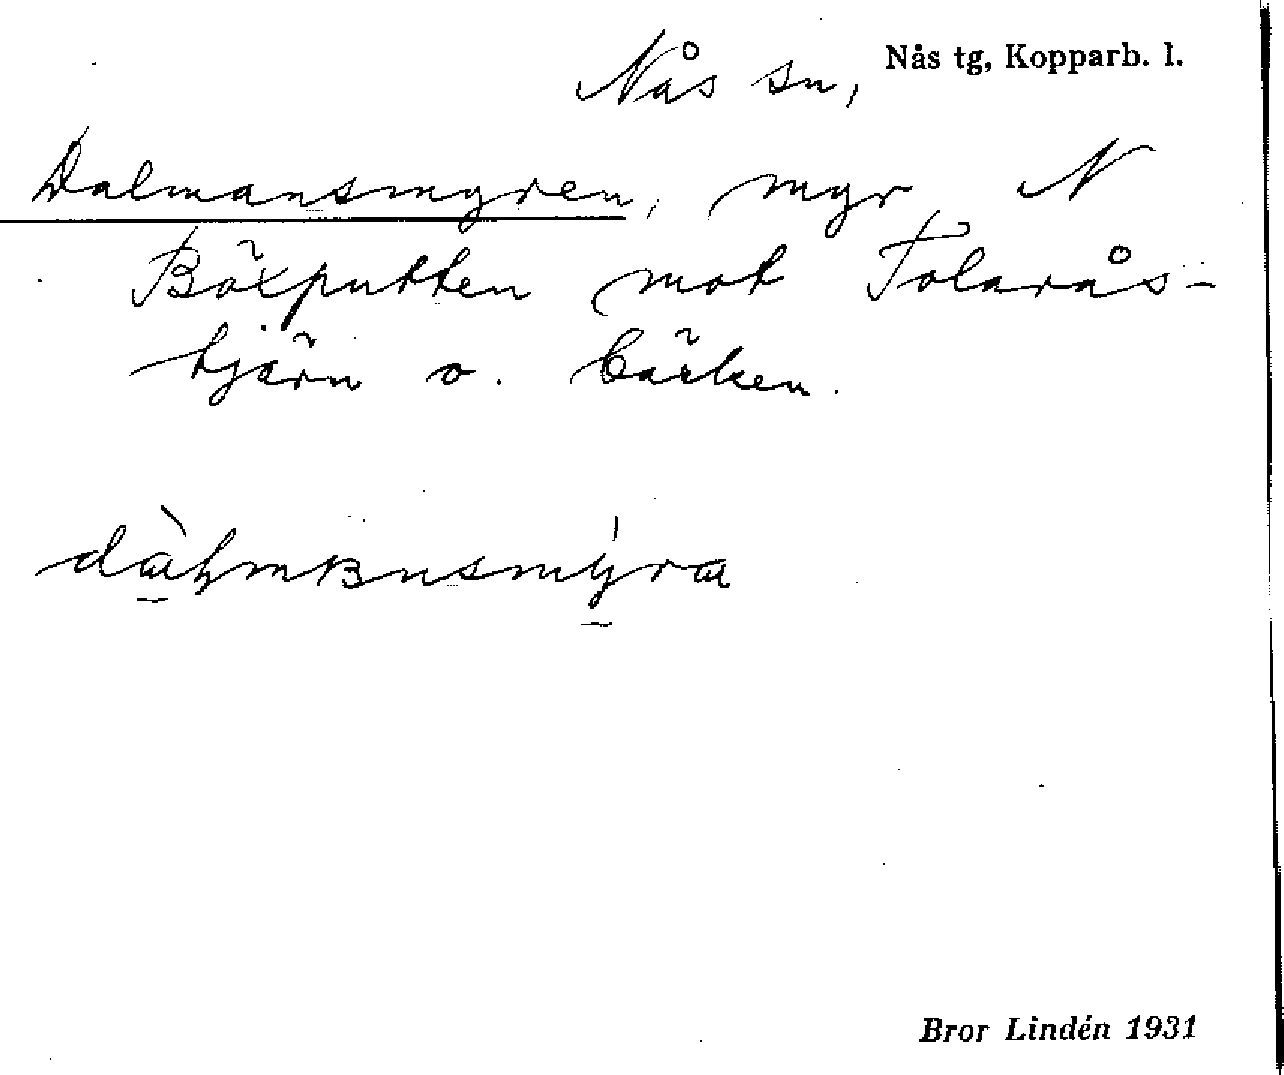 Nås sn, Nås tg, Kopparb. l.
Dalmansmyren, myr N
Böxputten mot Tolarås-
tjärn o. bäcken.
Bror Lindén 1931